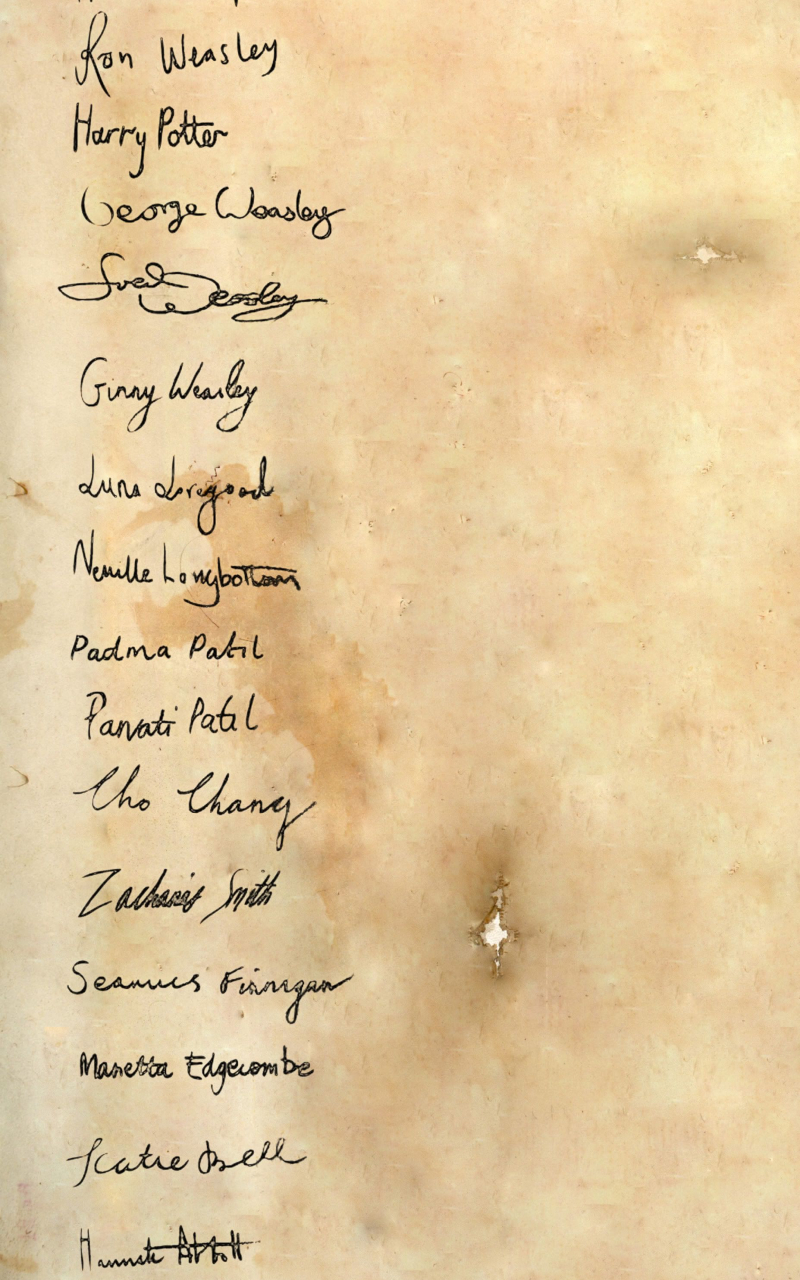 Ron Weasley
Harry Potter
George Weasley
Fred Weasley
Ginny Weasley
Luna Lovegood
Neville Longbottom
Padma Patil
Parvati Patil
Cho Chang
Zacharias Smith
Seamus Finnigan
Marietta Edgecombe
Katie Bell
Hannah Abbott